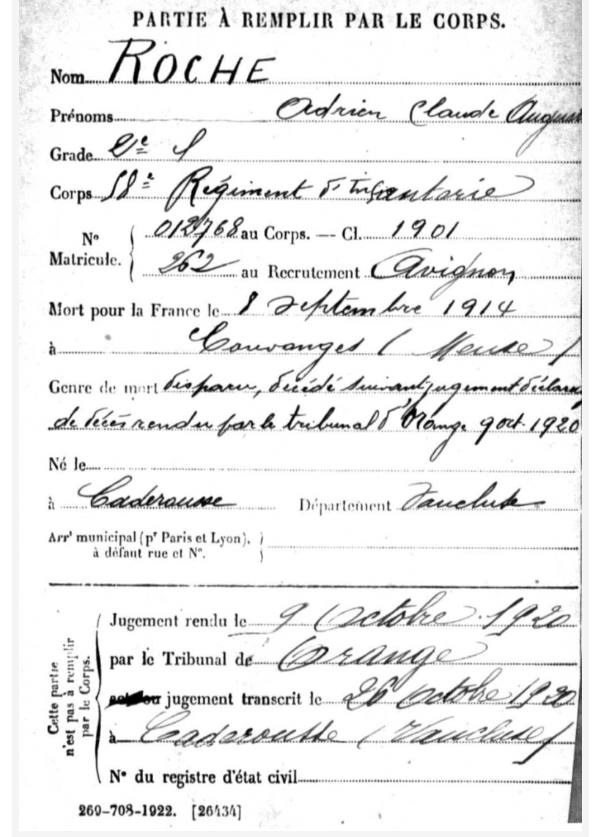 PARTIE À REMPLIR PAR LE CORPS.
Nom ROCHE
Prénoms Adrien Claude August
Grade 2e S
Corps 58e Régiment d'Infanterie
No Matricule. { 012768 au Corps. — Cl. 1901
262 au Recrutement Avignon
Mort pour la France le 8 Septembre 1914
à Couvonges (Meuse)
Genre de mort disparu, décédé suivant jugement déclara
de décès rendu par le tribunal d'Orange 9 oct. 1920
Né le
à Caderousse Département Vaucluse
Arrt municipal (pr Paris et Lyon),
à défaut rue et No.
Cette partie n'est pas à remplir par le Corps.
Jugement rendu le 9 Octobre 1920
par le Tribunal de Orange
jugement transcrit le 26 Octobre 1920
à Caderousse (Vaucluse)
No du registre d'état civil
269-708-1922. [26434]